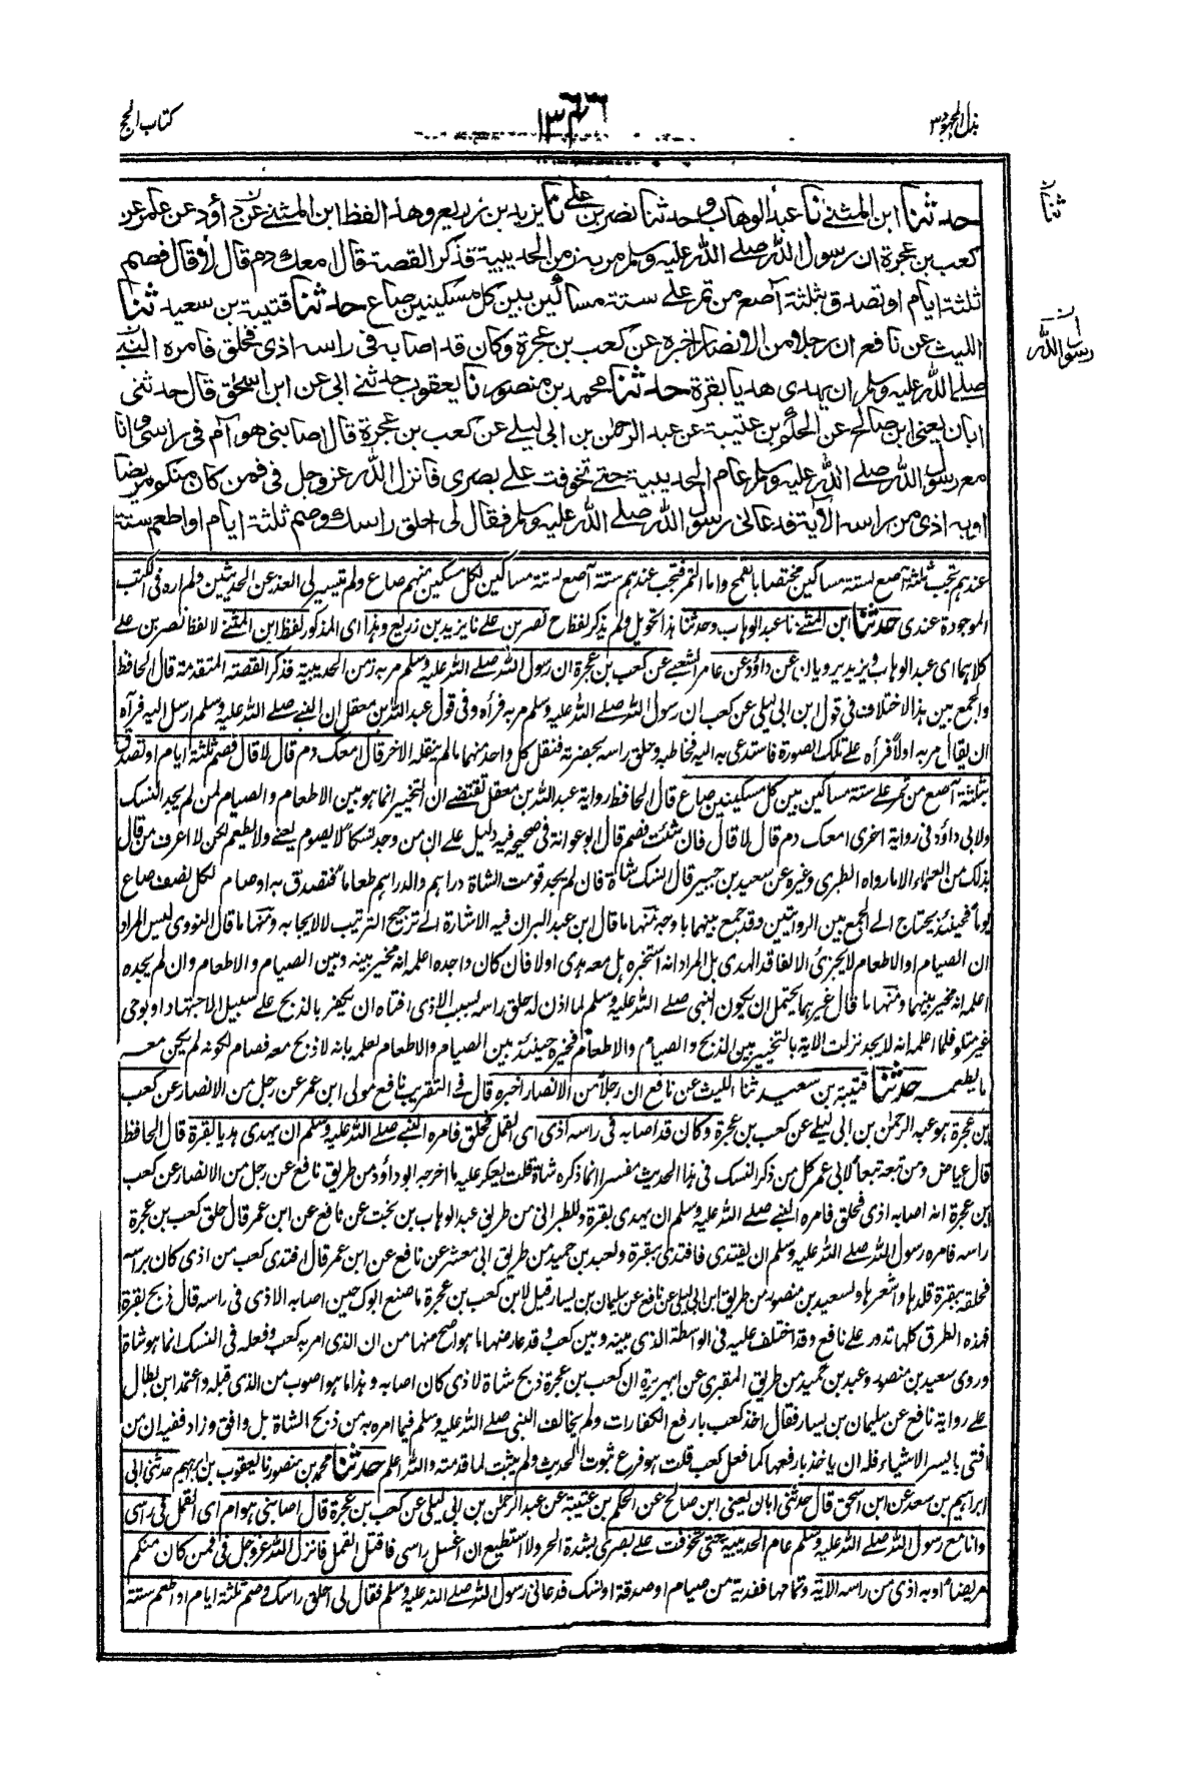 بذل المجهود ٣
١٣٦
كتاب الحج
حدثنا ابن المثنى نا عبد الوهاب وحدثنا نصر بن علي نا يزيد بن زريع وهذا لفظ ابن المثنى عن داؤد عن عامر عن
كعب بن عجرة ان رسول الله صلى الله عليه وسلم مر به زمن الحديبية فذكر القصة قال امعك دم قال لا قال فصم
ثلثة ايام او تصدق بثلثة آصع من تمر على ستة مساكين بين كل مسكينين صاع حدثنا قتيبة بن سعيد ثنا
الليث عن نافع ان رجلا من الانصار اخبره عن كعب بن عجرة وكان قد اصابه في راسه اذى فحلق فامره النبي
صلى الله عليه وسلم ان يهدى هديا بقرة حدثنا محمد بن منصور نا يعقوب حدثنى ابى عن ابن اسحق قال حدثنى
ابان يعنى ابن صالح عن الحكم بن عتيبة عن عبد الرحمن بن ابى ليلى عن كعب بن عجرة قال اصابنى هوام فى راسى وانا
مع رسول الله صلى الله عليه وسلم عام الحديبية حتى تخوفت على بصرى فانزل الله عز وجل فى فمن كان منكم مريضا
او به اذى من راسه الآية فدعانى رسول الله صلى الله عليه وسلم فقال لى احلق راسك وصم ثلثة ايام او اطعم ستة
ثنا
رسول الله
عندهم تجب ثلثة آصع لستة مساكين مختصا بالقمح واما التمر فتجب عندهم ستة آصع لستة مساكين لكل مسكين منهم صاع ولم يتيسر لى العذر عن المحدثين ولم اره فى الكتب
الموجودة عندى حدثنا ابن المثنى نا عبد الوهاب وحدثنا هذا تحويل ولم يذكر لفظ ح نصر بن على نا يزيد بن زريع وهذا اى المذكور لفظ ابن المثنى لا لفظ نصر بن على
كلاهما اى عبد الوهاب ويزيد يرويان عن داؤد عن عامر الشعبى عن كعب بن عجرة ان رسول الله صلى الله عليه وسلم مر به زمن الحديبية فذكر القصة المتقدمة قال الحافظ
والجمع بين هذا الاختلاف فى قول ابن ابى ليلى عن كعب ان رسول الله صلى الله عليه وسلم مر به فرأه وفى قول عبد الله بن معقل ان النبى صلى الله عليه وسلم ارسل اليه فرآه
ان يقال مر به اولا فرأه على تلك الصورة فاستدعى به اليه فخاطبه وحلق راسه بحضرته فنقل كل واحد منهما ما لم ينقله الاخر قال امعك دم قال لا قال فصم ثلثة ايام او تصدق
بثلثة آصع من تمر على ستة مساكين بين كل مسكينين صاع قال الحافظ رواية عبد الله بن معقل تقتضى ان التخيير انما هو بين الاطعام والصيام لمن لم يجد النسك
ولابى داؤد فى رواية اخرى امعك دم قال لا قال فان شئت فصم قال ابو عوانة فى صحيحه فيه دليل على ان من وجد نسكا لا يصوم يعنى ولا يطعم لكن لا اعرف من قال
بذلك من العلماء الا ما رواه الطبرى وغيره عن سعيد بن جبير قال النسك شاة فان لم يجد قومت الشاة دراهم والدراهم طعاما فتصدق به او صام لكل نصف صاع
يوما فحينئذ يحتاج الى الجمع بين الروايتين وقد جمع بينهما باوجه منها ما قال ابن عبد البر ان فيه الاشارة الى ترجيح الترتيب لا لايجابه ومنها ما قال النووى ليس المراد
ان الصيام او الاطعام لا يجزئ الا لفاقد الهدى بل المراد انه استخبره هل معه هدى اولا فان كان واجده اعلمه انه مخير بينه وبين الصيام والاطعام وان لم يجده
اعلمه انه مخير بينهما ومنها ما قال غيرهما يحتمل ان يكون النبى صلى الله عليه وسلم لما اذن له حلق راسه بسبب الاذى افتاه ان يكفر بالذبح على سبيل الاجتهاد او بوحى
غير متلو فلما اعلمه انه لا يجد نزلت الاية بالتخيير بين الذبح والصيام والاطعام فخيره حينئذ بين الصيام والاطعام لعلمه بانه لا ذبح معه فصام لكونه لم يكن معه
ما يطعمه حدثنا قتيبة بن سعيد ثنا الليث عن نافع ان رجلا من الانصار اخبره قال فى التقريب نافع مولى ابن عمر عن رجل من الانصار عن كعب
بن عجرة هو عبد الرحمن بن ابى ليلى عن كعب بن عجرة وكان قد اصابه فى راسه اذى اى القمل فحلق فامره النبى صلى الله عليه وسلم ان يهدى هديا بقرة قال الحافظ
قال عياض ومن تبعه تبعا لابى عمر كل من ذكر النسك فى هذا الحديث مفسرا انما ذكره شاة قلت يعكر عليه ما اخرجه ابو داؤد من طريق نافع عن رجل من الانصار عن كعب
بن عجرة انه اصابه اذى فحلق فامره النبى صلى الله عليه وسلم ان يهدى بقرة وللطبرانى من طريق عبد الوهاب بن بخت عن نافع عن ابن عمر قال حلق كعب بن عجرة
راسه فامره رسول الله صلى الله عليه وسلم ان يفتدى فافتدى ببقرة ولعبد بن حميد من طريق ابى معشر عن نافع عن ابن عمر قال افتدى كعب من اذى كان براسه
فحلقه ببقرة قلدها واشعرها ولسعيد بن منصور من طريق ابن ابى ليلى عن نافع عن سليمان بن يسار قيل لابن كعب بن عجرة ما صنع ابوك حين اصابه الاذى فى راسه قال ذبح بقرة
فهذه الطرق كلها تدور على نافع وقد اختلف عليه فى الواسطة الذى بينه وبين كعب وقد عارضها ما هو اصح منها من ان الذى امر به كعب وفعله فى النسك انما هو شاة
وروى سعيد بن منصور وعبد بن حميد من طريق المقبرى عن ابى هريرة ان كعب بن عجرة ذبح شاة لاذى كان اصابه وهذا ما هو اصوب من الذى قبله واعتمد ابن بطال
على رواية نافع عن سليمان بن يسار فقال اخذ كعب بارفع الكفارات ولم يخالف النبى صلى الله عليه وسلم فيما امره به من ذبح الشاة بل وافق وزاد ففيه ان من
افتى بايسر الاشياء فله ان ياخذ بارفعها كما فعل كعب قلت هو فرع ثبوت الحديث ولم يثبت لما قدمته والله اعلم حدثنا محمد بن منصور نا يعقوب بن ابرهيم حدثنى ابى
ابراهيم بن سعد عن ابن اسحق قال حدثنى ابان يعنى ابن صالح عن الحكم بن عتيبة عن عبد الرحمن بن ابى ليلى عن كعب بن عجرة قال اصابنى هوام اى القمل فى راسى
وانا مع رسول الله صلى الله عليه وسلم عام الحديبية حتى تخوفت على بصرى بشدة الحر ولا استطيع ان اغسل راسى فاقتل القمل فانزل الله عز وجل فى فمن كان منكم
مريضا او به اذى من راسه الاية وتمامها ففدية من صيام او صدقة او نسك فدعانى رسول الله صلى الله عليه وسلم فقال لى احلق راسك وصم ثلثة ايام او اطعم ستة